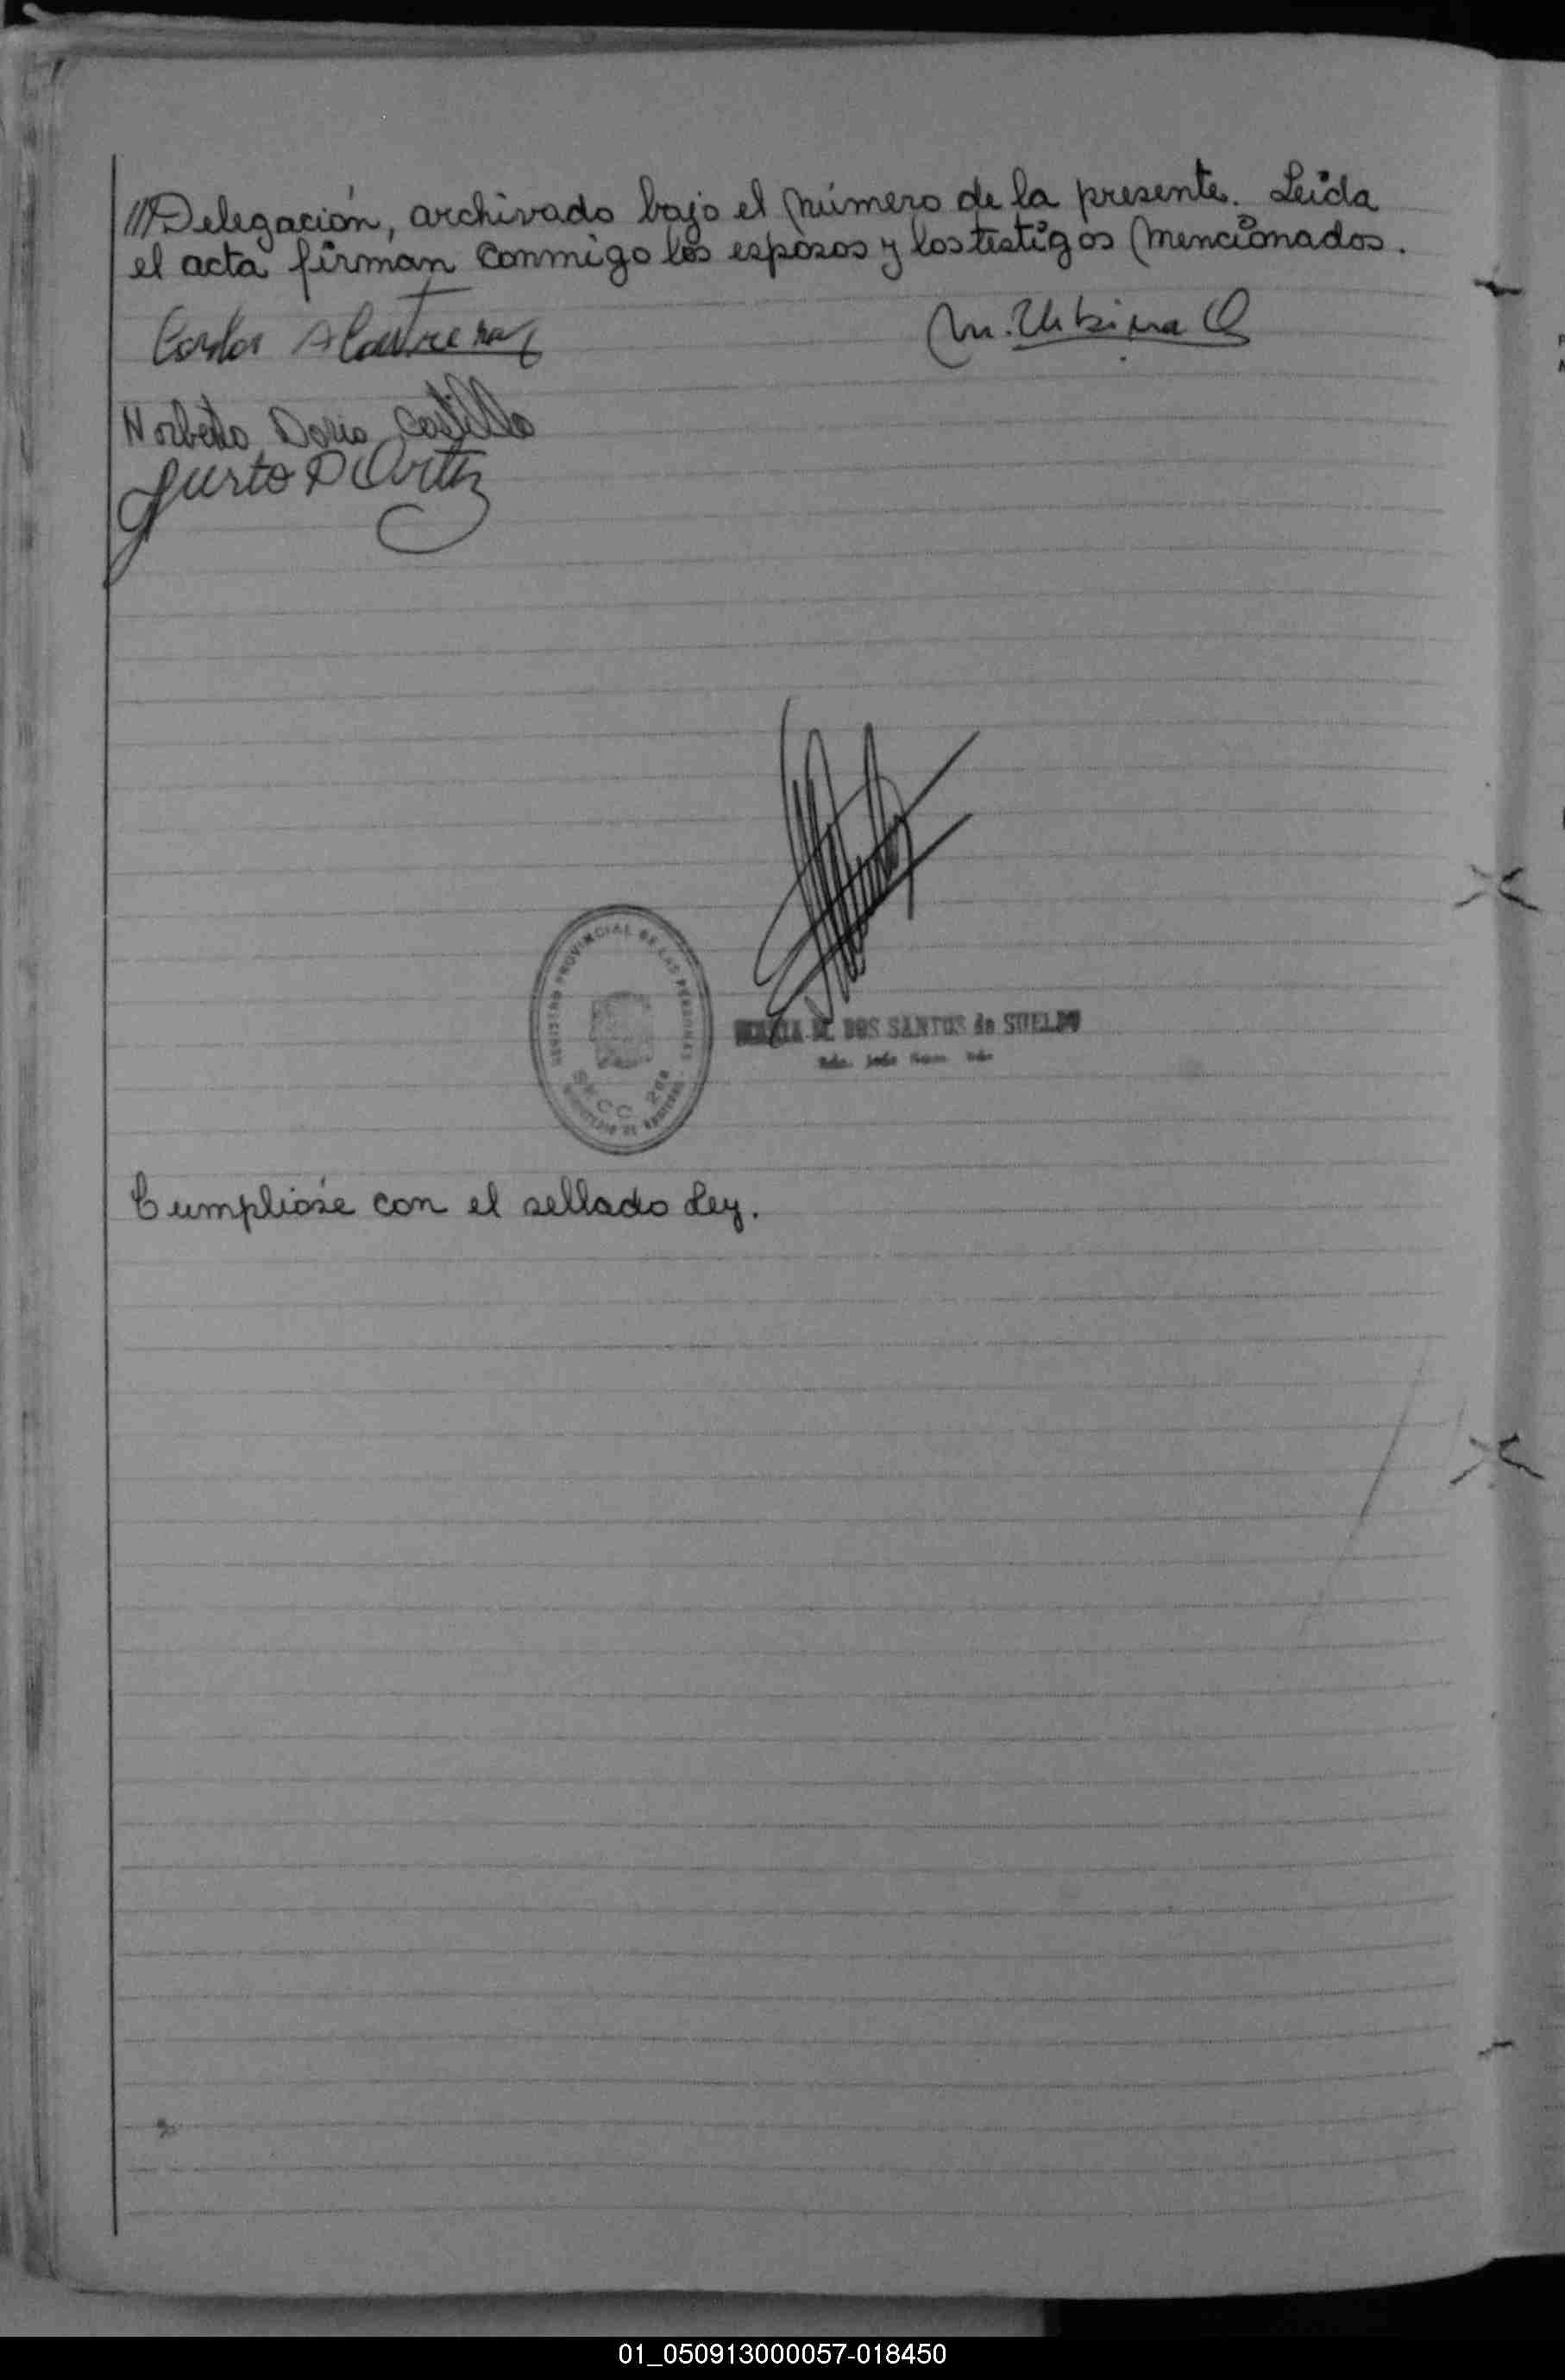 ///Delegación, archivado bajo el número de la presente. Leída
el acta firman conmigo los esposos y los testigos mencionados.
Carlos M. Urbina Q
Norberto Dario Castillo
Justo D Ortiz
REGISTRO PROVINCIAL DE LAS PERSONAS
SECC
MARIA M. DOS SANTOS de SUELDO
Cumplióse con el sellado Ley.
01_050913000057-018450